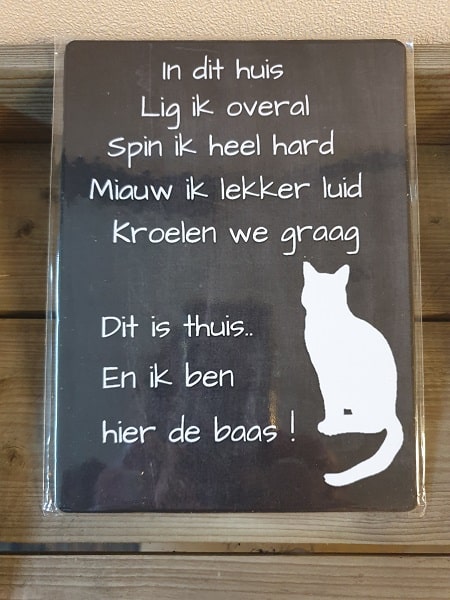 In dit huis
Lig ik overal
Spin ik heel hard
Miauw ik lekker luid
Kroelen we graag
Dit is thuis..
En ik ben
hier de baas !